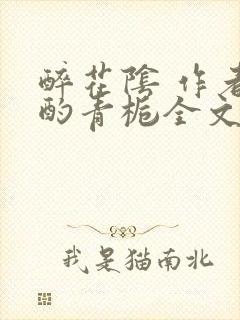 醉花陰 作者
酌青梔全文
我是猫南北